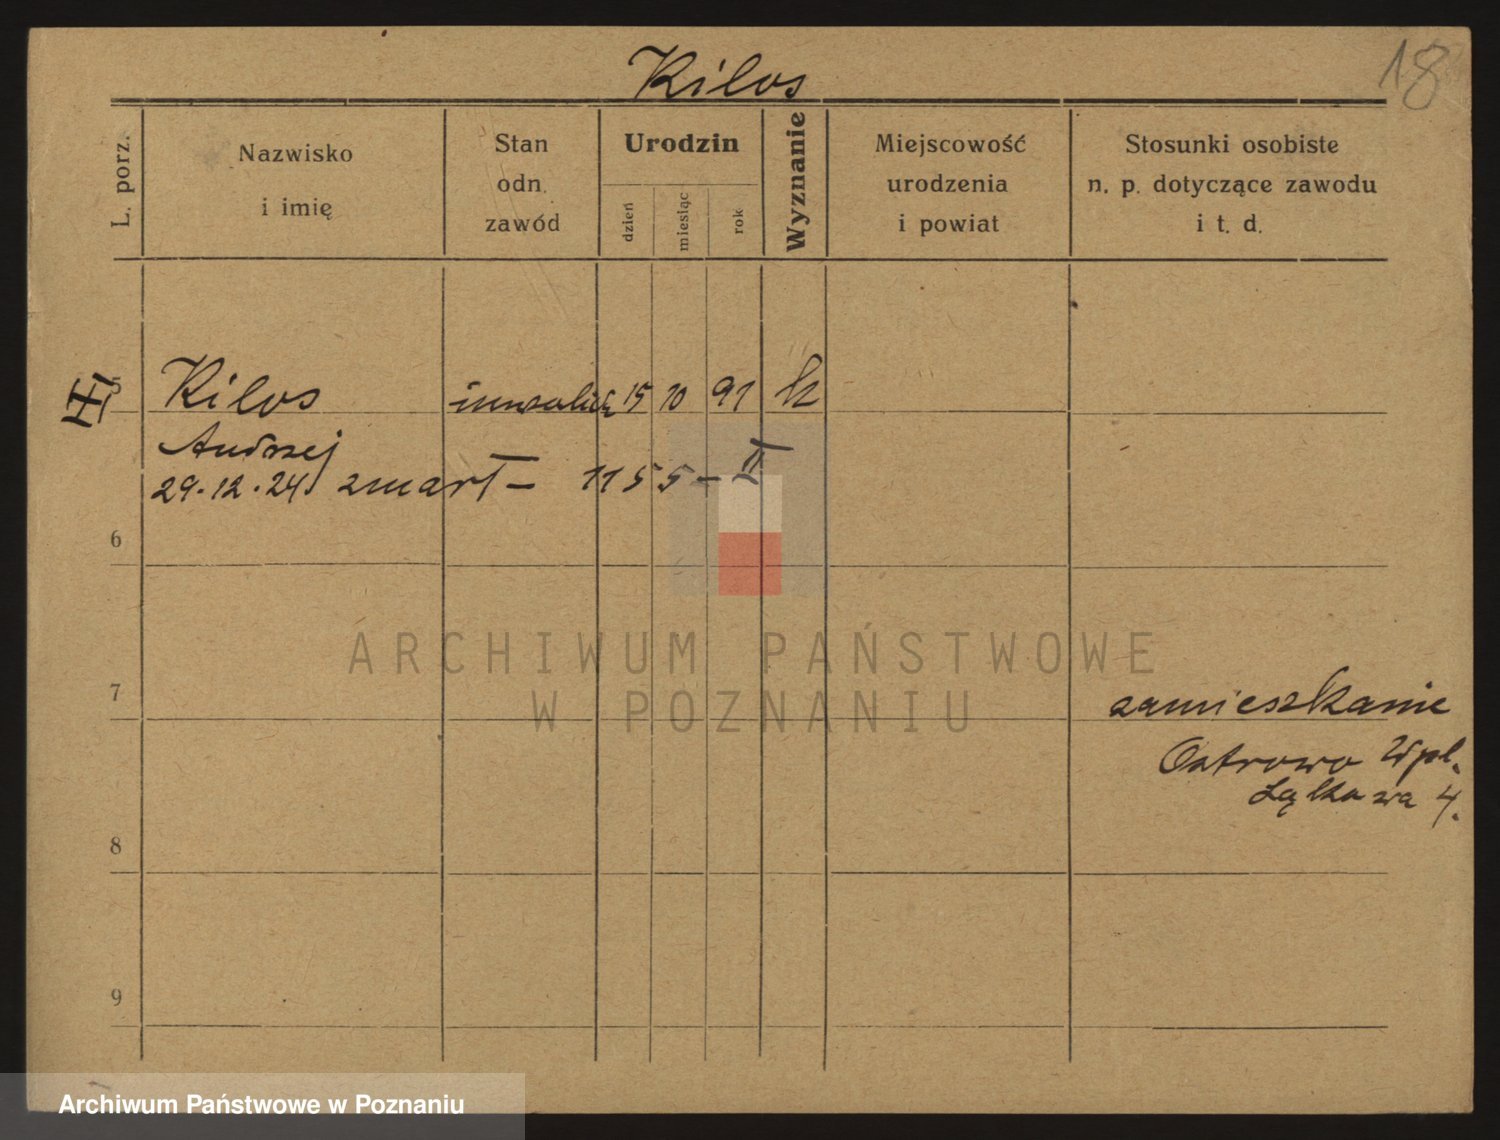 Kilos
18
L. porz.
Nazwisko
i imię
Stan
odn.
zawód
Urodzin
dzień
miesiąc
rok
Wyznanie
Miejscowość
urodzenia
i powiat
Stosunki osobiste
n. p. dotyczące zawodu
i t. d.
5 Kilos inwalida 15 10 91 k
Andrzej
29.12.24 zmart – 1155 – II
6
7
zamieszkanie
Ostrowo Wpl.
Łąkowa 4.
8
9
ARCHIWUM PAŃSTWOWE
W POZNANIU
Archiwum Państwowe w Poznaniu